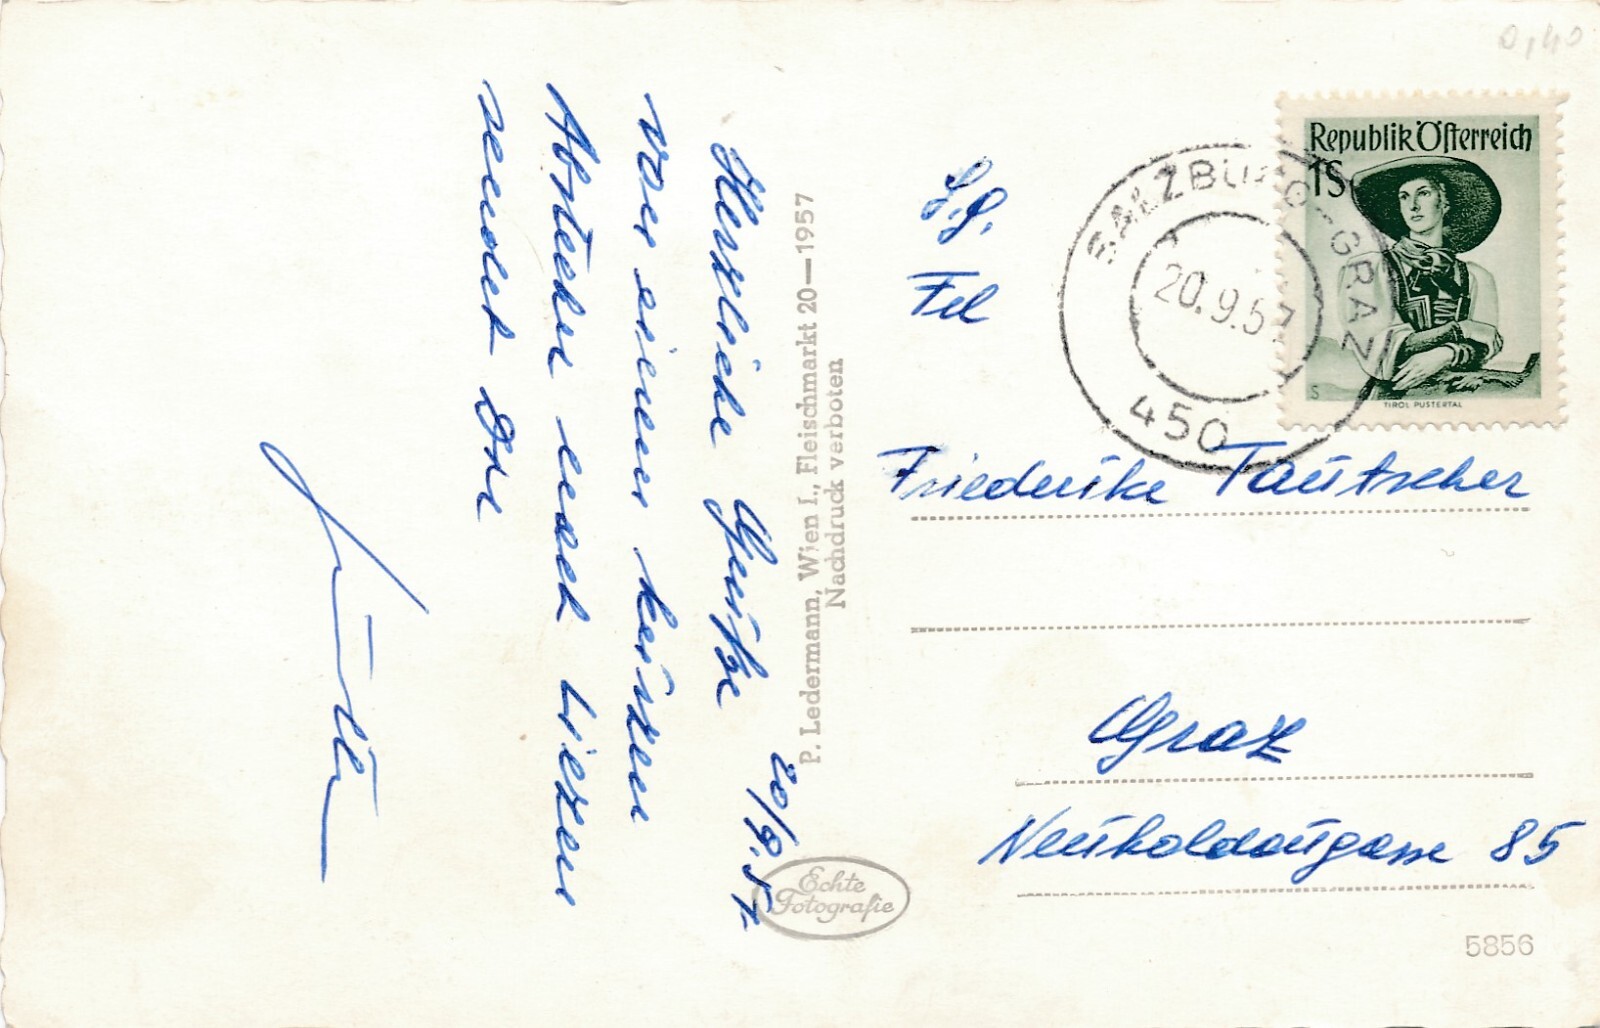 20/9.57
Herzliche Grüße
von einem kurzen
Abstecher nach Liezen
sendet Dir
P. Ledermann, Wien I., Fleischmarkt 20—1957
Nachdruck verboten
Echte
Fotografie
0,40
Republik Österreich
1S
S
TIROL PUSTERTAL
SALZBURG-GRAZ
20.9.57
450
Frl
Friederike Tautscher
Graz
Neuholdaugasse 85
5856